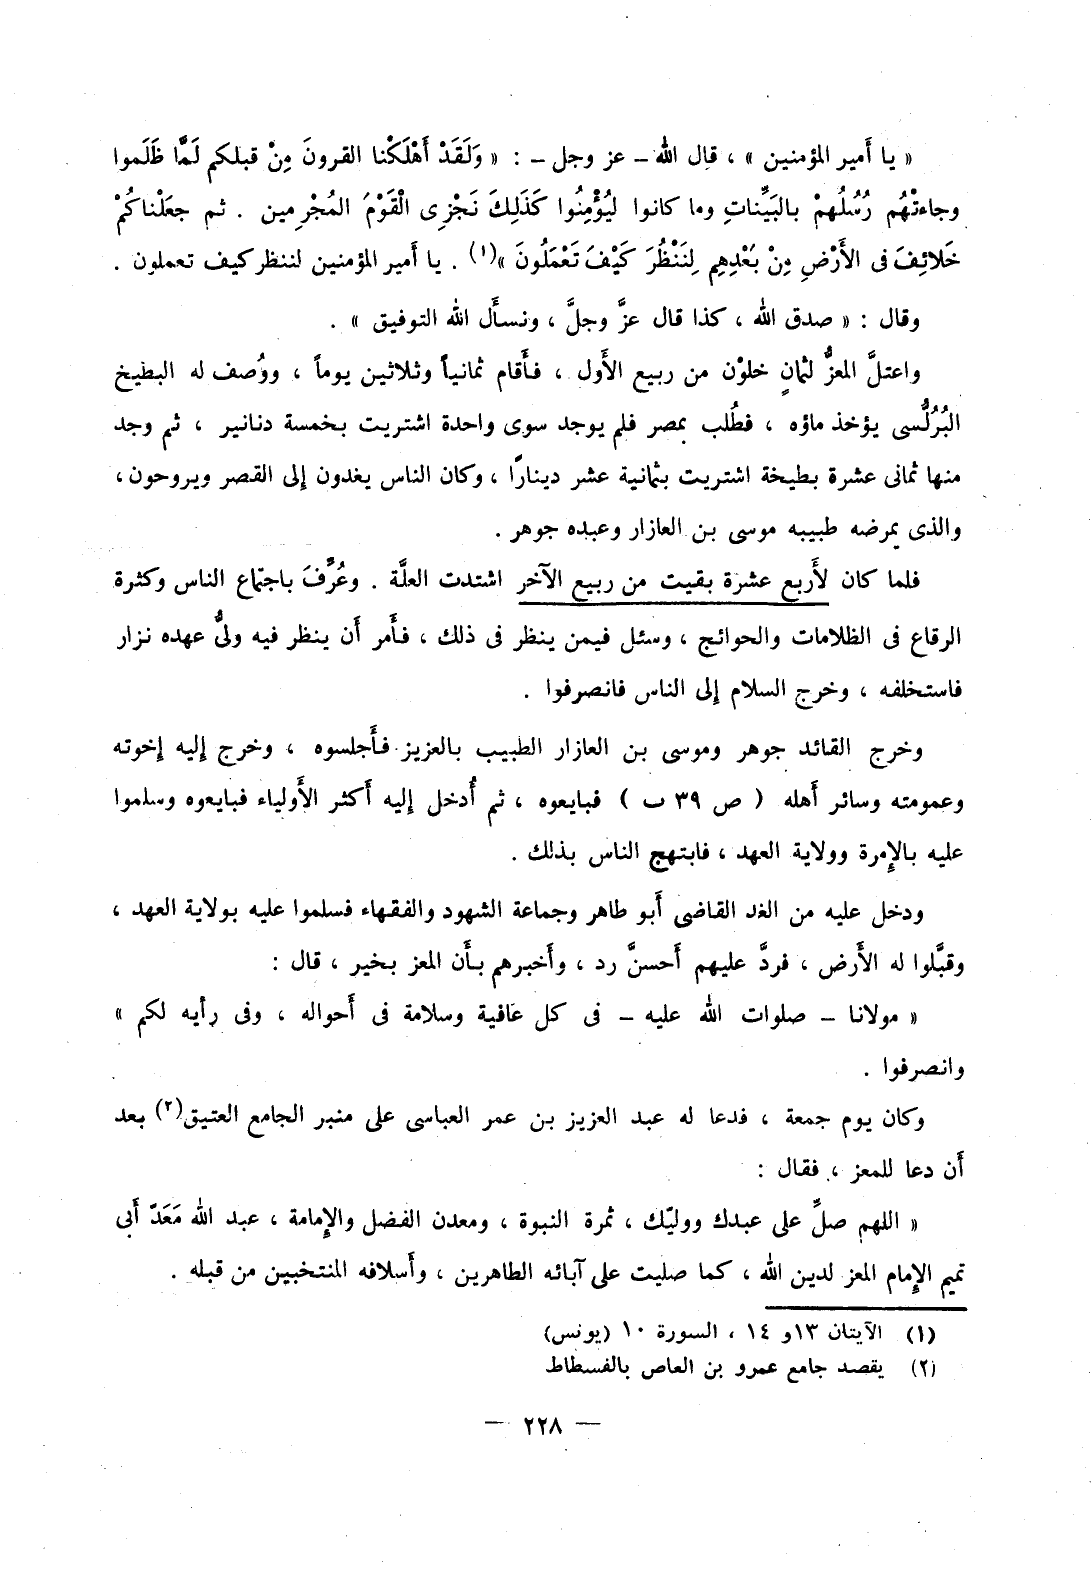 « يا أَمير المؤمنين » ، قال الله - عز وجل - : « وَلَقَدْ أَهْلَكْنا القرونَ مِنْ قبلكم لَمَّا ظَلَموا
وجاءتْهُم رُسُلُهمْ بالبَيِّناتِ وما كانوا لِيُؤْمِنُوا كَذَلِكَ نَجْزِى الْقَوْمَ المُجْرِمين . ثم جعَلْناكُمْ
خَلائِفَ فى الأَرْضِ مِنْ بَعْدِهِم لِنَنْظُرَ كَيْفَ تَعْمَلُونَ »(١) . يا أَمير المؤمنين لننظر كيف تعملون .
وقال : « صدق الله ، كذا قال عزَّ وجلَّ ، ونسأَل الله التوفيق » .
واعتلَّ المعزُّ لثمانٍ خلوْن من ربيع الأَول ، فأَقام ثمانياً وثلاثين يوماً ، ووُصف له البطيخ
البُرُلُّسى يؤخذ ماؤه ، فطُلب بمصر فلم يوجد سوى واحدة اشتريت بخمسة دنانير ، ثم وجد
منها ثمانى عشرة بطيخة اشتريت بثمانية عشر دينارًا ، وكان الناس يغدون إلى القصر ويروحون ،
والذى يمرضه طبيبه موسى بن العازار وعبده جوهر .
فلما كان لأَربع عشرة بقيت من ربيع الآخر اشتدت العلَّة . وعُرِّفَ باجتماع الناس وكثرة
الرقاع فى الظلامات والحوائج ، وسئل فيمن ينظر فى ذلك ، فأَمر أَن ينظر فيه ولىُّ عهده نزار
فاستخلفه ، وخرج السلام إلى الناس فانصرفوا .
وخرج القائد جوهر وموسى بن العازار الطبيب بالعزيز فأَجلسوه ، وخرج إليه إخوته
وعمومته وسائر أَهله ( ص ٣٩ ب ) فبايعوه ، ثم أُدخل إليه أَكثر الأَولياء فبايعوه وسلموا
عليه بالإمرة وولاية العهد ، فابتهج الناس بذلك .
ودخل عليه من الغد القاضى أَبو طاهر وجماعة الشهود والفقهاء فسلموا عليه بولاية العهد ،
وقبَّلوا له الأَرض ، فردَّ عليهم أَحسنَّ رد ، وأَخبرهم بأَن المعز بخير ، قال :
« مولانا - صلوات الله عليه - فى كل عافية وسلامة فى أَحواله ، وفى رأيه لكم »
وانصرفوا .
وكان يوم جمعة ، فدعا له عبد العزيز بن عمر العباسى على منبر الجامع العتيق(٢) بعد
أَن دعا للمعز ، فقال :
« اللهم صلِّ على عبدك ووليّك ، ثمرة النبوة ، ومعدن الفضل والإمامة ، عبد الله مَعَدّ أَبى
تميم الإمام المعز لدين الله ، كما صليت على آبائه الطاهرين ، وأَسلافه المنتخبين من قبله .
(١) الآيتان ١٣و ١٤ ، السورة ١٠ (يونس)
(٢) يقصد جامع عمرو بن العاص بالفسطاط
— ٢٢٨ —